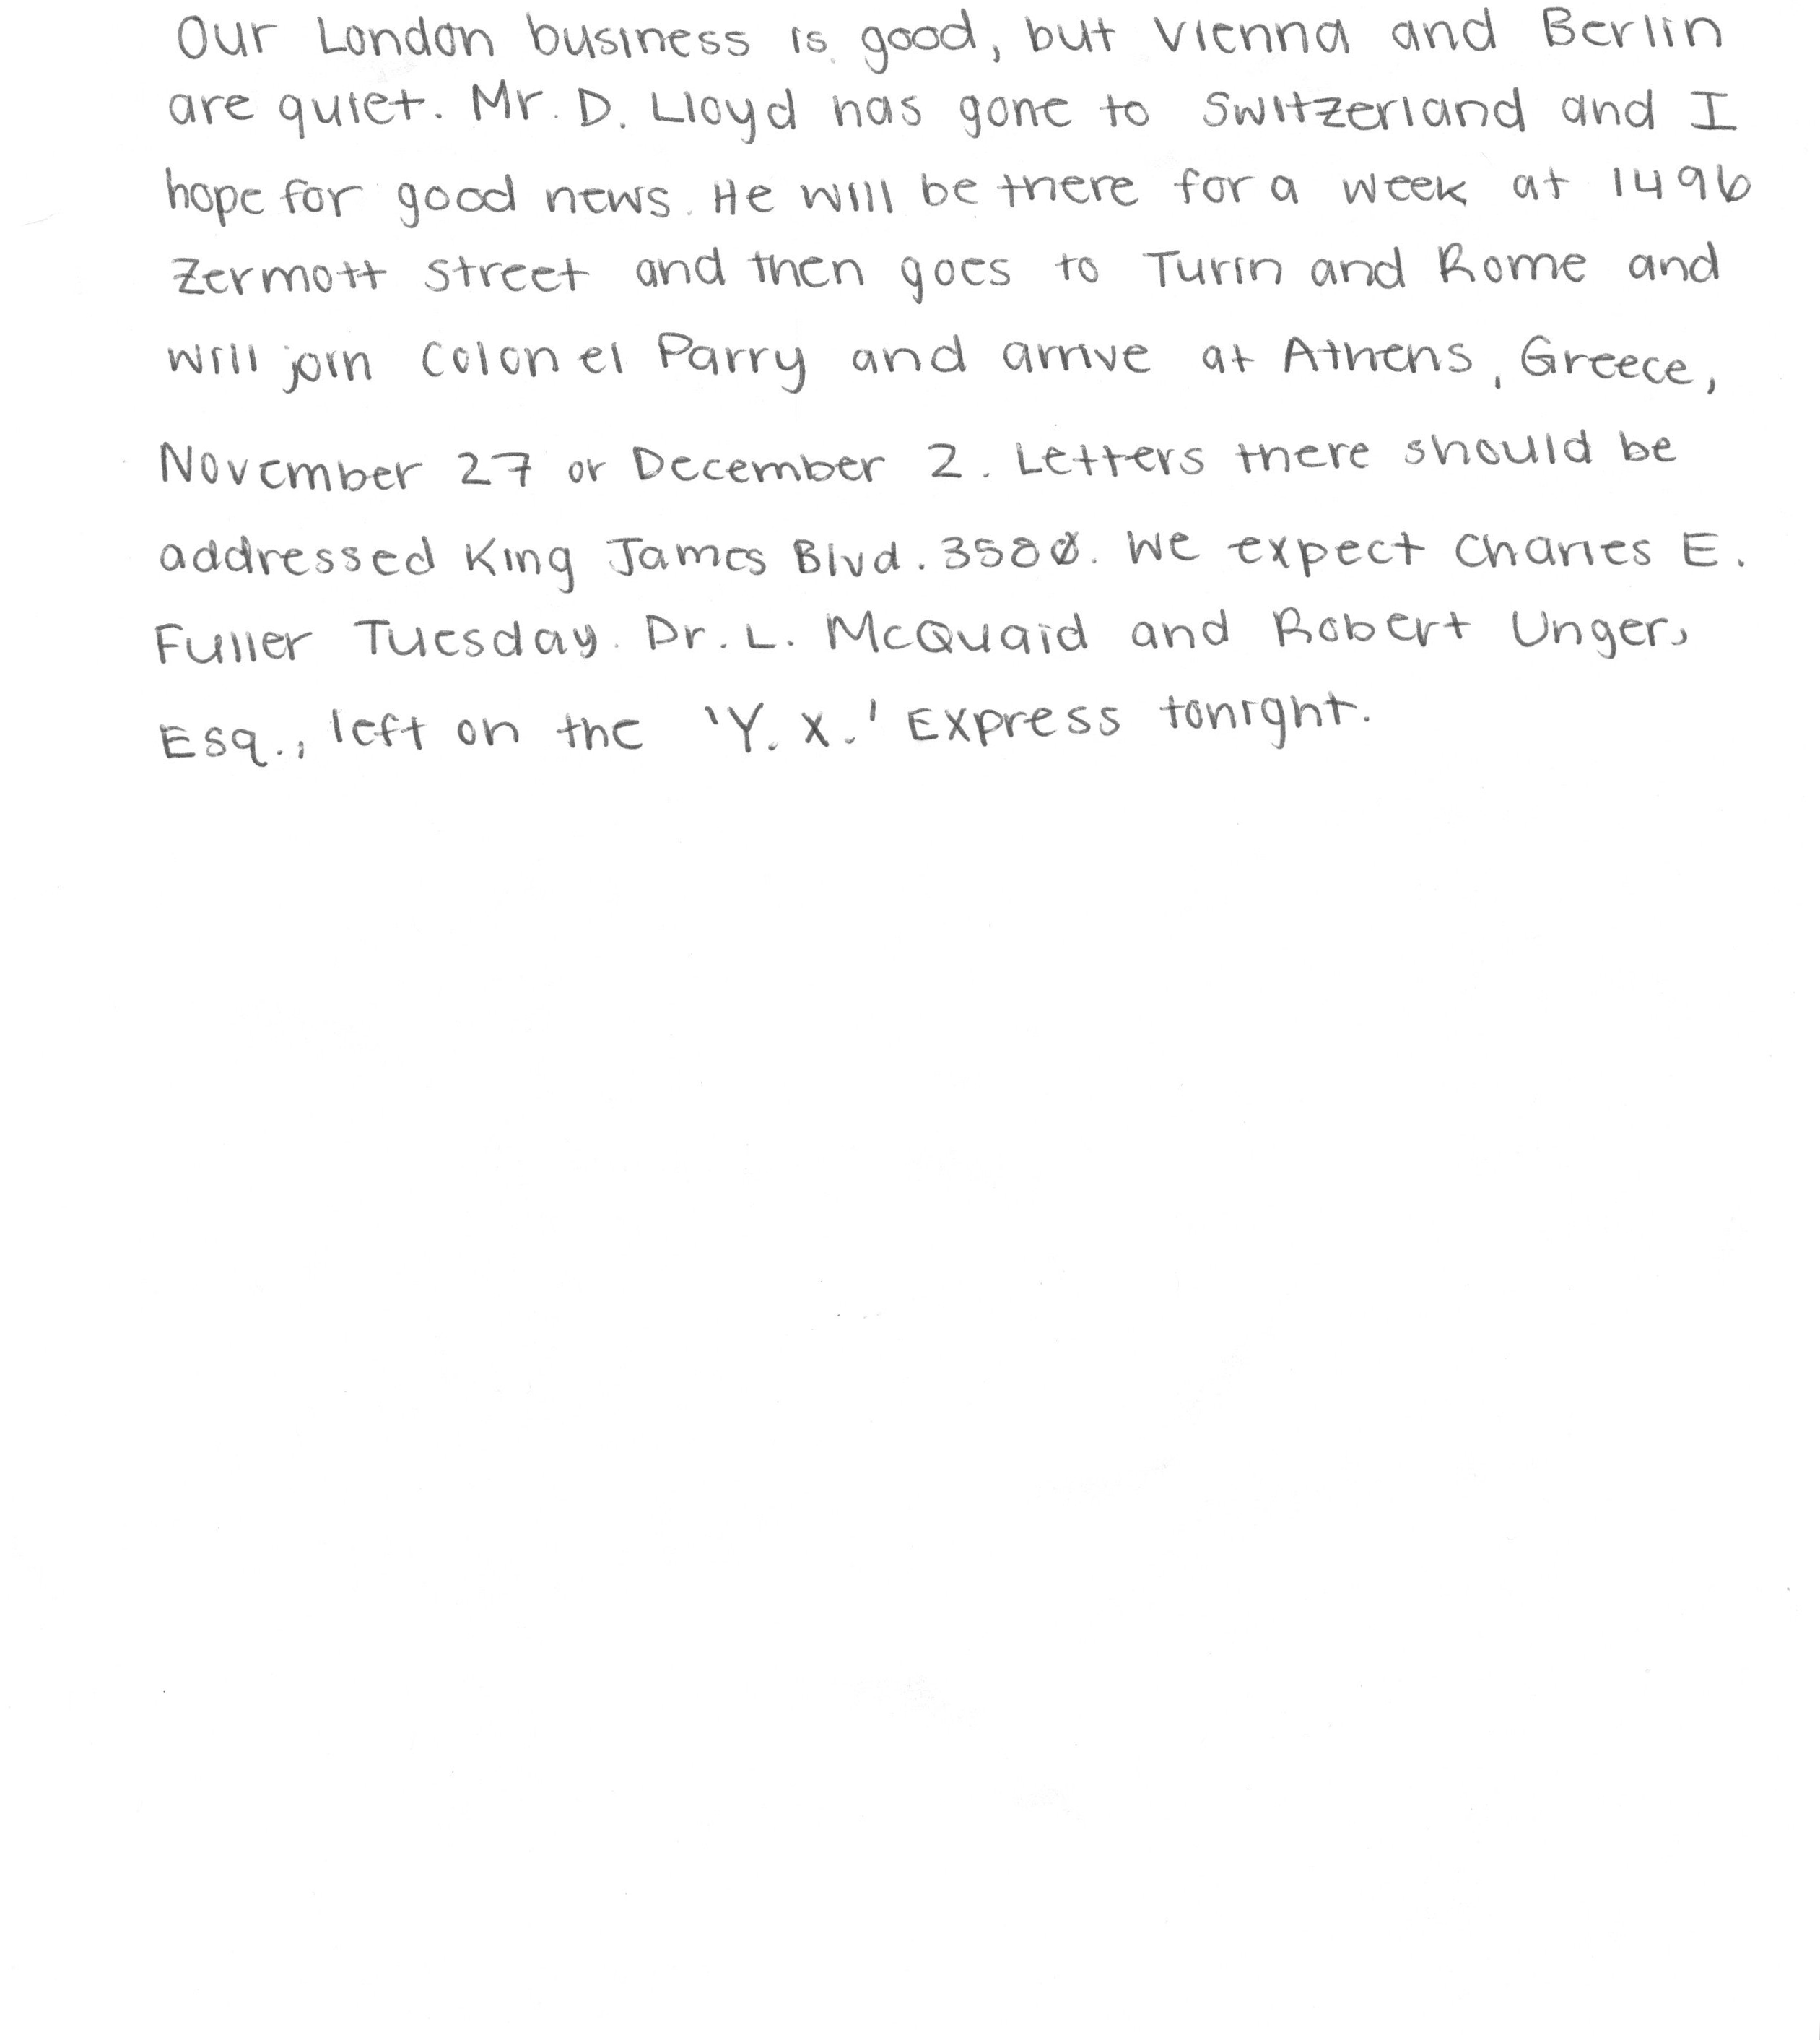 Our London business is good, but Vienna and Berlin
are quiet. Mr. D. Lloyd has gone to Switzerland and I
hope for good news. He will be there for a week at 1496
Zermott Street and then goes to Turin and Rome and
will join Colonel Parry and arrive at Athens, Greece,
November 27 or December 2. Letters there should be
addressed King James Blvd. 3580. We expect Charles E.
Fuller Tuesday. Dr. L. McQuaid and Robert Unger,
Esq., left on the 'Y. X.' Express tonight.